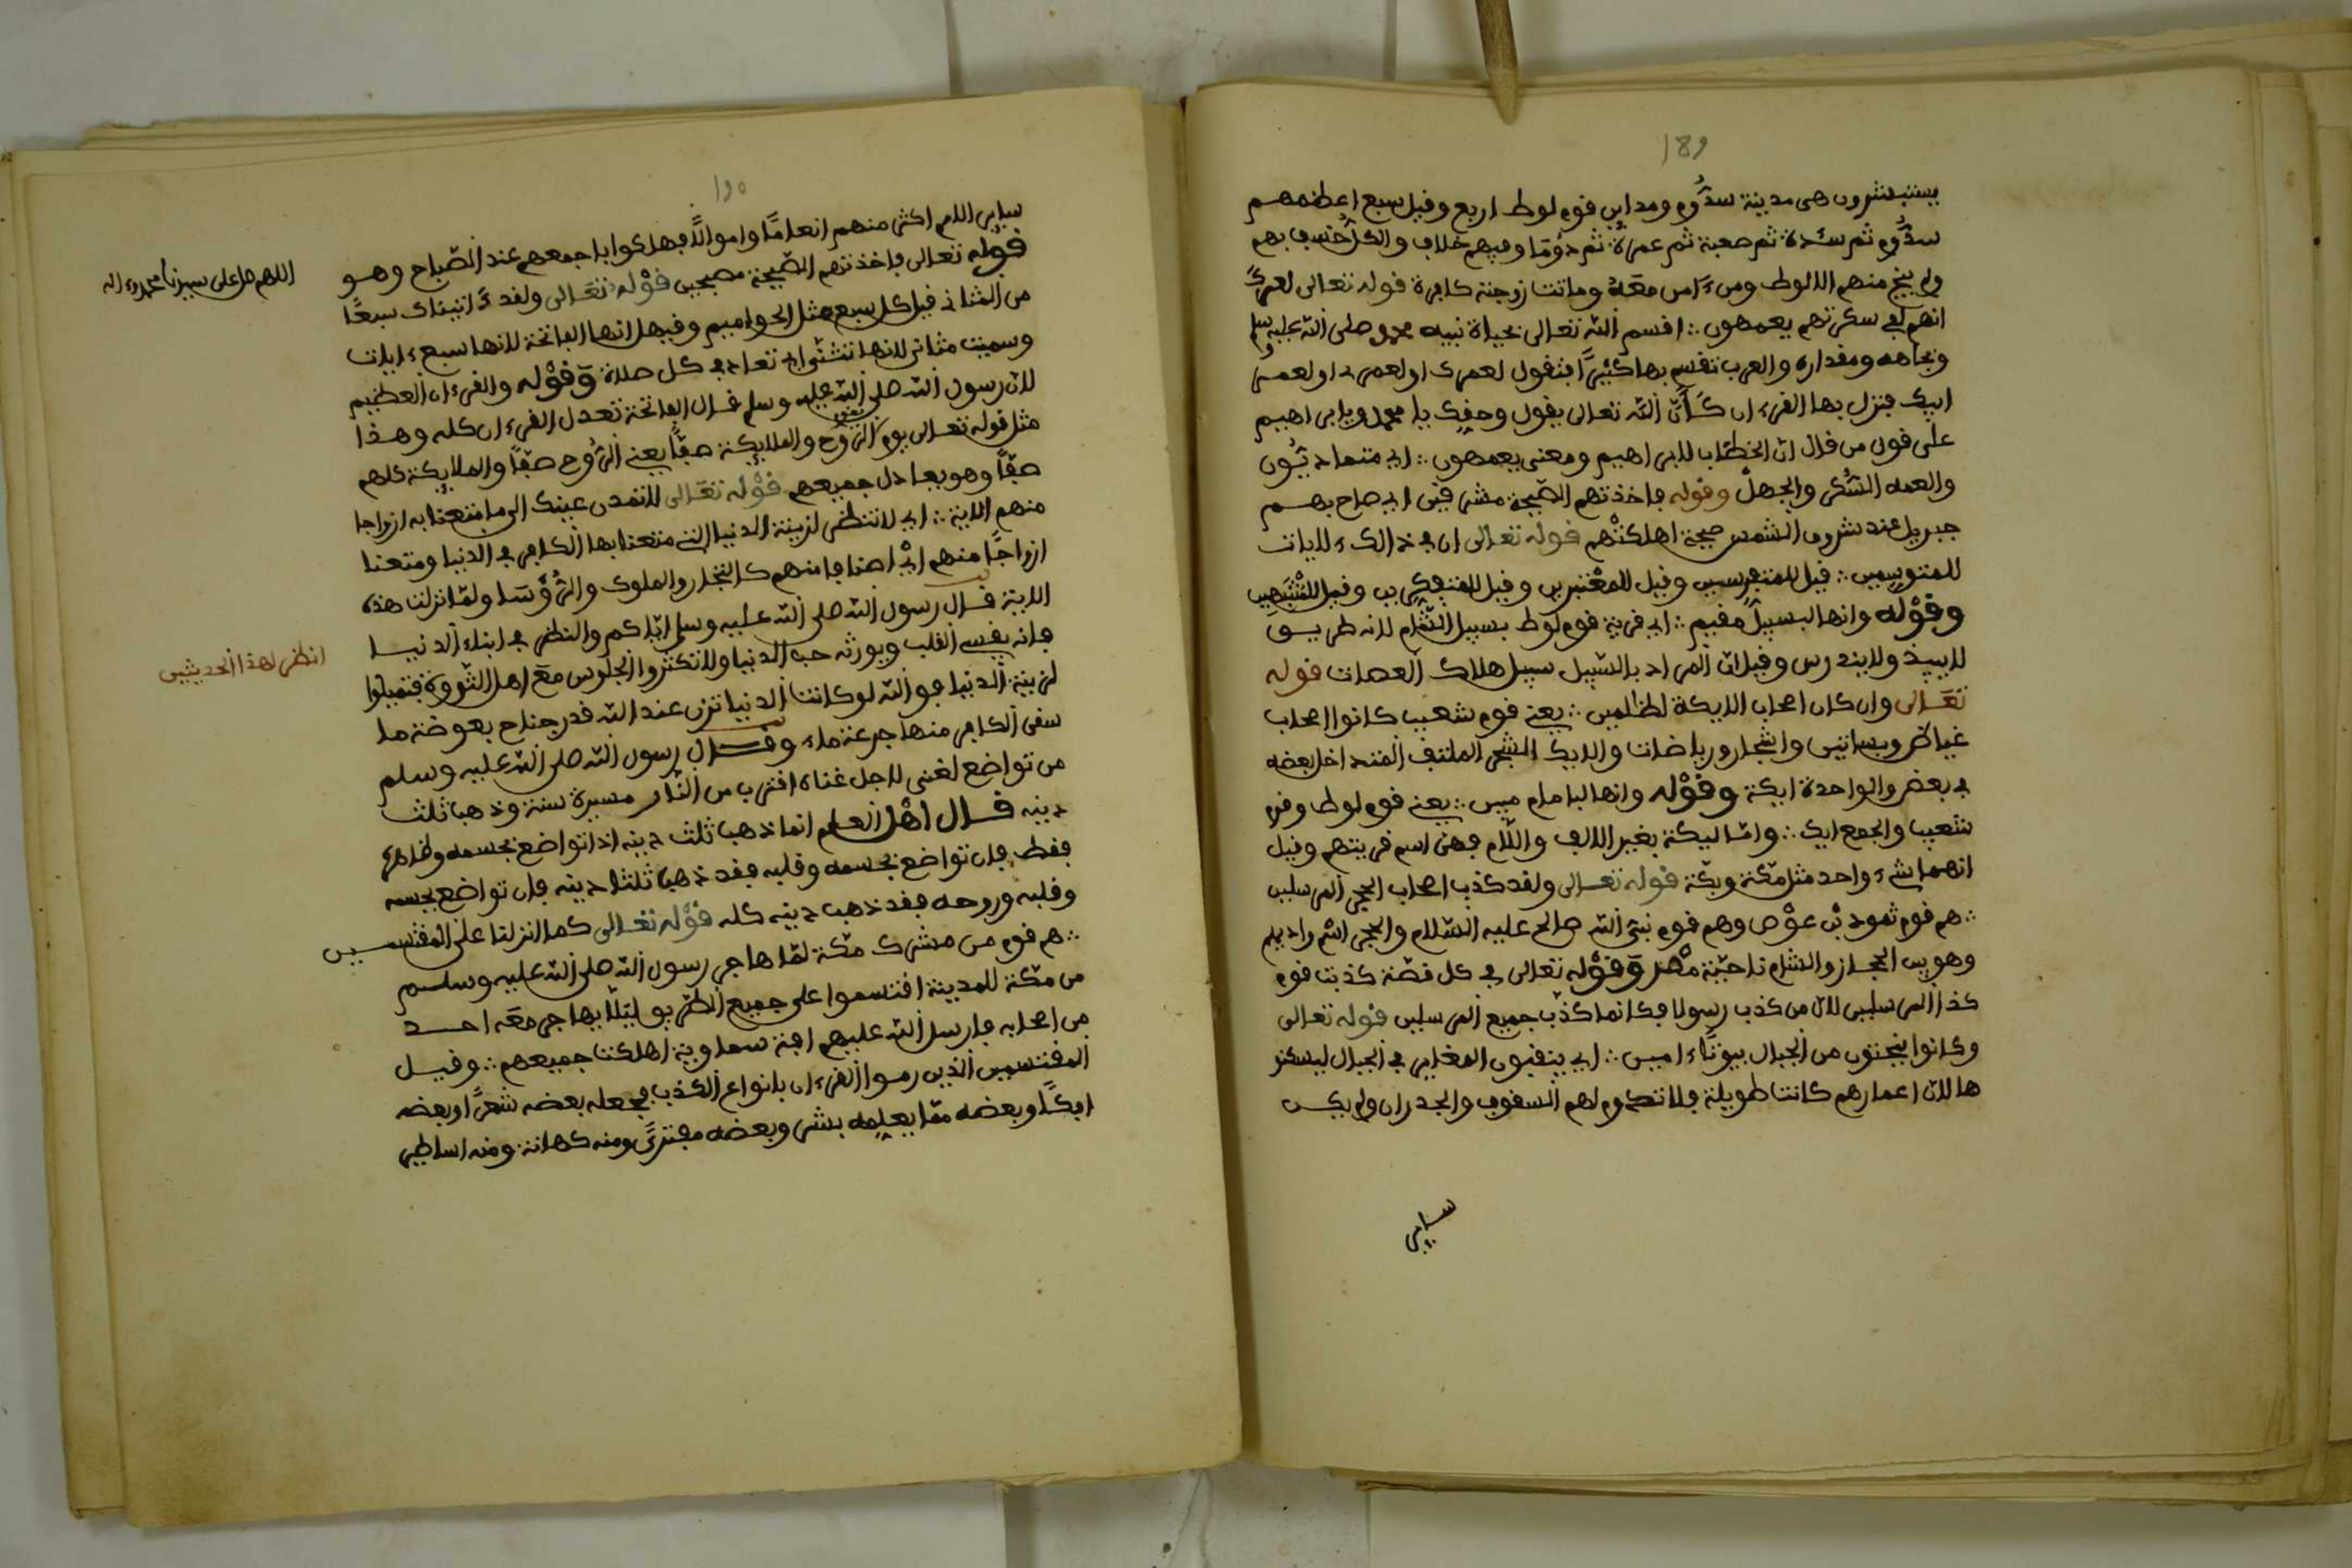 189
يستبشرون هى مدينة سدوم ومداين قوم لوط اربع وقيل سبع اعظمهم
سدوم ثم سدة ثم صعبة ثم عمرة ثم دوما وفيهم خلاف والكل خسف بهم
ولم ينج منهم الا لوط ومن ءامن معه وماتت زوجته كافرة قوله تعالى لعمرك
انهم لفى سكرتهم يعمهون ∴ اقسم الله تعالى بحياة نبيه محمد صلى الله عليه وسلم
وبجاهه ومقداره والعرب تقسم بها كثيرا فتقول لعمرك او لعمرى او لعمر
ابيك فنزل بها القرءان كأن الله تعالى يقول وحقك يا محمد ويا ابراهيم
على قول من قال ان الخطاب لابراهيم ومعنى يعمهون ∴ اى متمادون
والعمه السكر والجهل وقوله فاخذتهم الصيحة مشرقين اى صاح بهم
جبريل عند شروق الشمس صيحة اهلكتهم قوله تعالى ان فى ذالك ءلايات
للمتوسمين ∴ قيل للمتفرسين وقيل للمعتبرين وقيل للمتفكرين وقيل للمنتبهين
وقوله وانها لبسبيل مقيم ∴ اى قرية قوم لوط بسبيل الشام لانه طريق
لا يبيد ولا يندرس وقيل ان المراد بالسبيل سبيل هلاك العصات قوله
تعالى وان كان اصحاب الايكة لظلمين ∴ يعنى قوم شعيب كانوا اصحاب
غياض وبساتين واشجار ورياضات والايك الشجر الملتف المتداخل بعضه
فى بعض والواحدة ايكة وقوله وانها لبامام مبين ∴ يعنى قوم لوط وقوم
شعيب والجمع ايك ∴ واما ليكة بغير الالف واللام فهى اسم قريتهم وقيل
انهما شىء واحد مثل مكة وبكة قوله تعالى ولقد كذب اصحاب الحجر المرسلين
∴ هم قوم ثمود بن عوص وهم قوم نبى الله صالح عليه السلام والحجر اسم واديهم
وهو بين الحجاز والشام ناحية مصر وقوله تعالى فى كل قصة كذبت قوم
كذا المرسلين لان من كذب رسولا فكانما كذب جميع المرسلين قوله تعالى
وكانوا ينحتون من الجبال بيوتا ءامين ∴ اى ينقبون المغاير فى الجبال ليسكنو
ها لان اعمارهم كانت طويلة فلا تدوم لهم السقوف والجدران ولم يكن
ساير
190
ساير الامم اكثر منهم انعاما واموالا فهلكوا باجمعهم عند الصباح وهو
قوله تعالى فاخذتهم الصيحة مصبحين قوله تعالى ولقد ءاتيناك سبعا
من المثانى قيل كل سبع مثل الحواميم وقيل انها الفاتحة لانها سبع ءايات
وسميت مثانى لانها تثنى اى تعاد فى كل صلاة وقوله والقرءان العظيم
لان رسول الله صلى الله عليه وسلم قال الفاتحة تعدل القرءان كله وهذا
مثل قوله تعالى يوم يقوم الروح والملايكة صفا يعنى الروح صفا والملايكة كلهم
صفا وهو يعادل جميعهم قوله تعالى لا تمدن عينك الى ما متعنا به ازواجا
منهم الاية ∴ اى لا تنظر لزينة الدنيا التى متعنا بها الكافر فى الدنيا ومتعنا
ازواجا منهم اى اصنافا منهم كالتجار والملوك والرؤسا ولما نزلت هذه
الاية قال رسول الله صلى الله عليه وسلم اياكم والنظر فى ابناء الدنيا
فانه يقسى القلب ويورثه حب الدنيا ولا تكثروا الجلوس مع اهل الثروة فتميلوا
لزينة الدنيا فو الله لو كانت الدنيا تزن عند الله قدر جناح بعوضة ما
سقى الكافر منها جرعة ماء وقال رسول الله صلى الله عليه وسلم
من تواضع لغنى لاجل غناه اقترب من النار مسيرة سنة وذهب ثلث
دينه قال اهل العلم انما ذهب ثلث دينه اذا تواضع بجسمه وظاهره
فقط فان تواضع بجسمه وقلبه فقد ذهب ثلثا دينه فان تواضع بجسمه
وقلبه وروحه فقد ذهب دينه كله قوله تعالى كما انزلنا على المقتسمين
∴ هم قوم من مشرك مكة لما هاجر رسول الله صلى الله عليه وسلم
من مكة للمدينة اقتسموا على جميع الطريق ليلا يهاجر معه احد
من اصحابه فارسل الله عليهم افة سماوية اهلكت جميعهم ∴ وقيل
المقتسمين الذين رموا القرءان بانواع الكذب فجعله بعضه شعرا وبعضه
افكا وبعضه مما يعلمه بشر وبعضه مفترى ومنه كهانة ومنه اساطير
اللهم صل على سيدنا محمد وءاله
انظر لهذا الحديثين